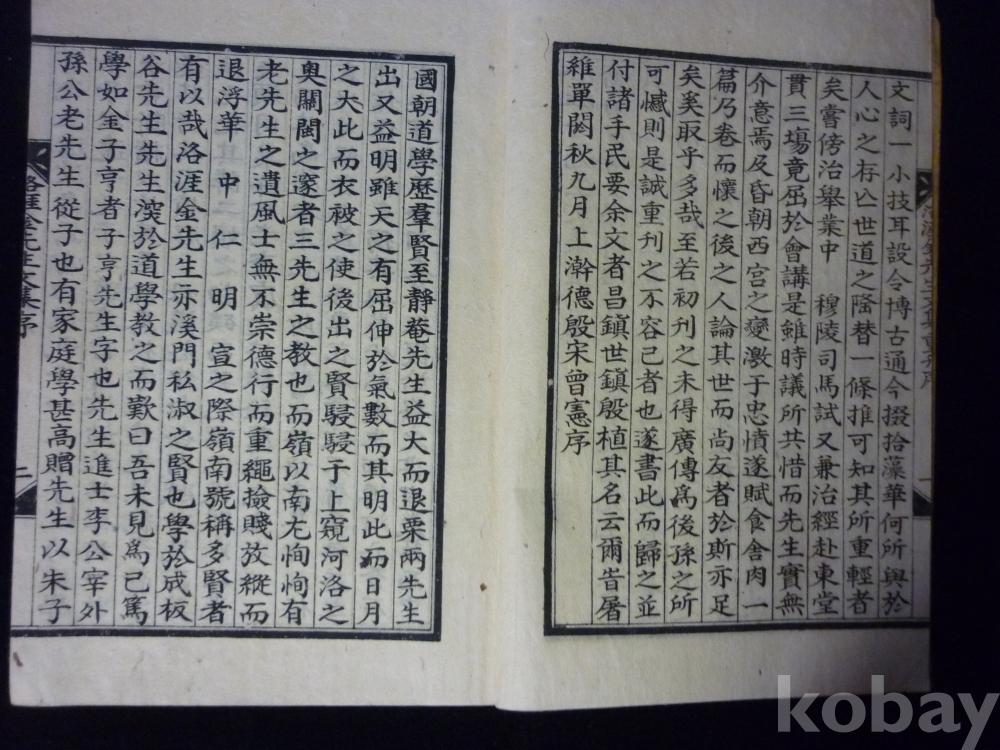 文詞一小技耳設令博古通今掇拾藻華何所與於
人心之存亾世道之隆替一條推可知其所重輕者
矣嘗傍治舉業中 穆陵司馬試又兼治經赴東堂
貫三場竟屈於會講是雖時議所共惜而先生實無
介意焉及昏朝西宮之變激于忠憤遂賦食舍肉一
篇乃卷而懷之後之人論其世而尚友者於斯亦足
矣奚取乎多哉至若初刊之未得廣傳爲後孫之所
可憾則是誠重刊之不容已者也遂書此而歸之並
付諸手民要余文者昌鎭世鎭殷植其名云爾旹屠
維單閼秋九月上澣德殷宋曾憲序
國朝道學歷羣賢至靜菴先生益大而退栗兩先生
出又益明雖天之有屈伸於氣數而其明此而日月
之大此而衣被之使後出之賢駸駸于上窺河洛之
奧關閩之邃者三先生之敎也而嶺以南尤恂恂有
老先生之遺風士無不崇德行而重繩撿賤放縱而
退浮華 中 仁 明 宣之際嶺南號稱多賢者
有以哉洛涯金先生亦溪門私淑之賢也學於成板
谷先生先生深於道學敎之而歎曰吾未見爲己爲
學如金子亨者子亨先生字也先生進士李公宰外
孫公老先生從子也有家庭學甚高贈先生以朱子
洛涯金先生文集序
二
kobay